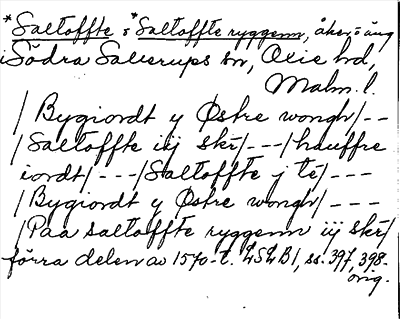 *Saltoffte o *Saltoffte ryggenn, åker o äng
i Södra Sallerups sn, Oxie hd,
Malm. l.
/Bygiordt y Østre wongh/--
/Saltoffte iij skr/---/hauffre
iordt/---/Saltoffte j te/---
/Bygiordt y Østre wongh/---
/Paa saltoffte ryggenn iij skr/
förra delen av 1570-t. LSLB1, ss. 397, 398.
orig.